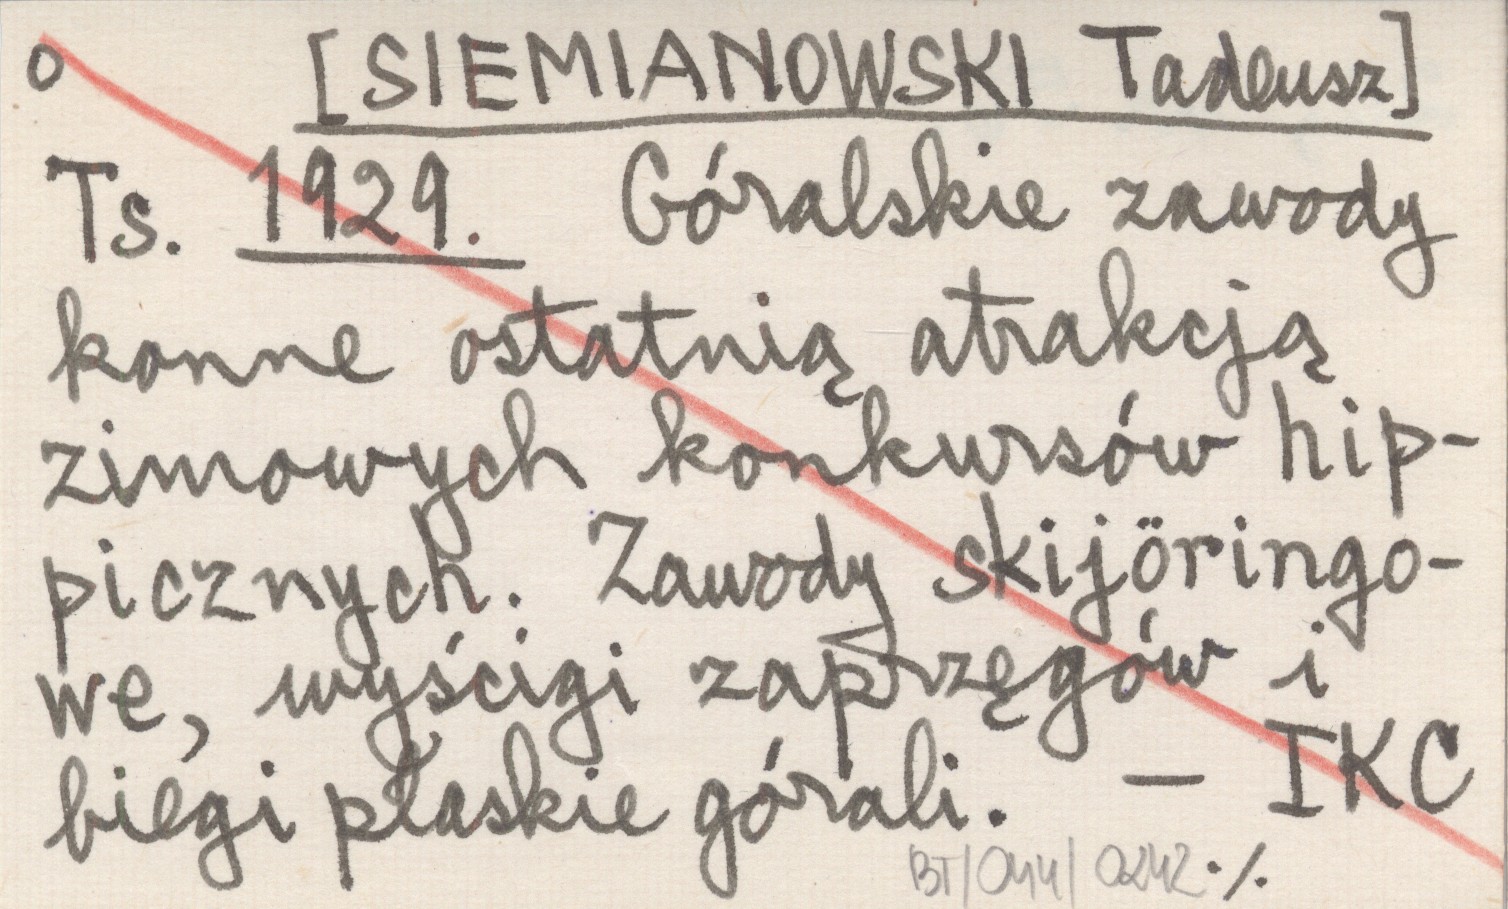 o [SIEMIANOWSKI Tadeusz]
Ts. 1929. Góralskie zawody
konne ostatnią atrakcją
zimowych konkursów hip-
picznych. Zawody skijöringo-
we, wyścigi zaprzęgów i
biegi płaskie górali. — IKC
BT/044/0242 ·/.